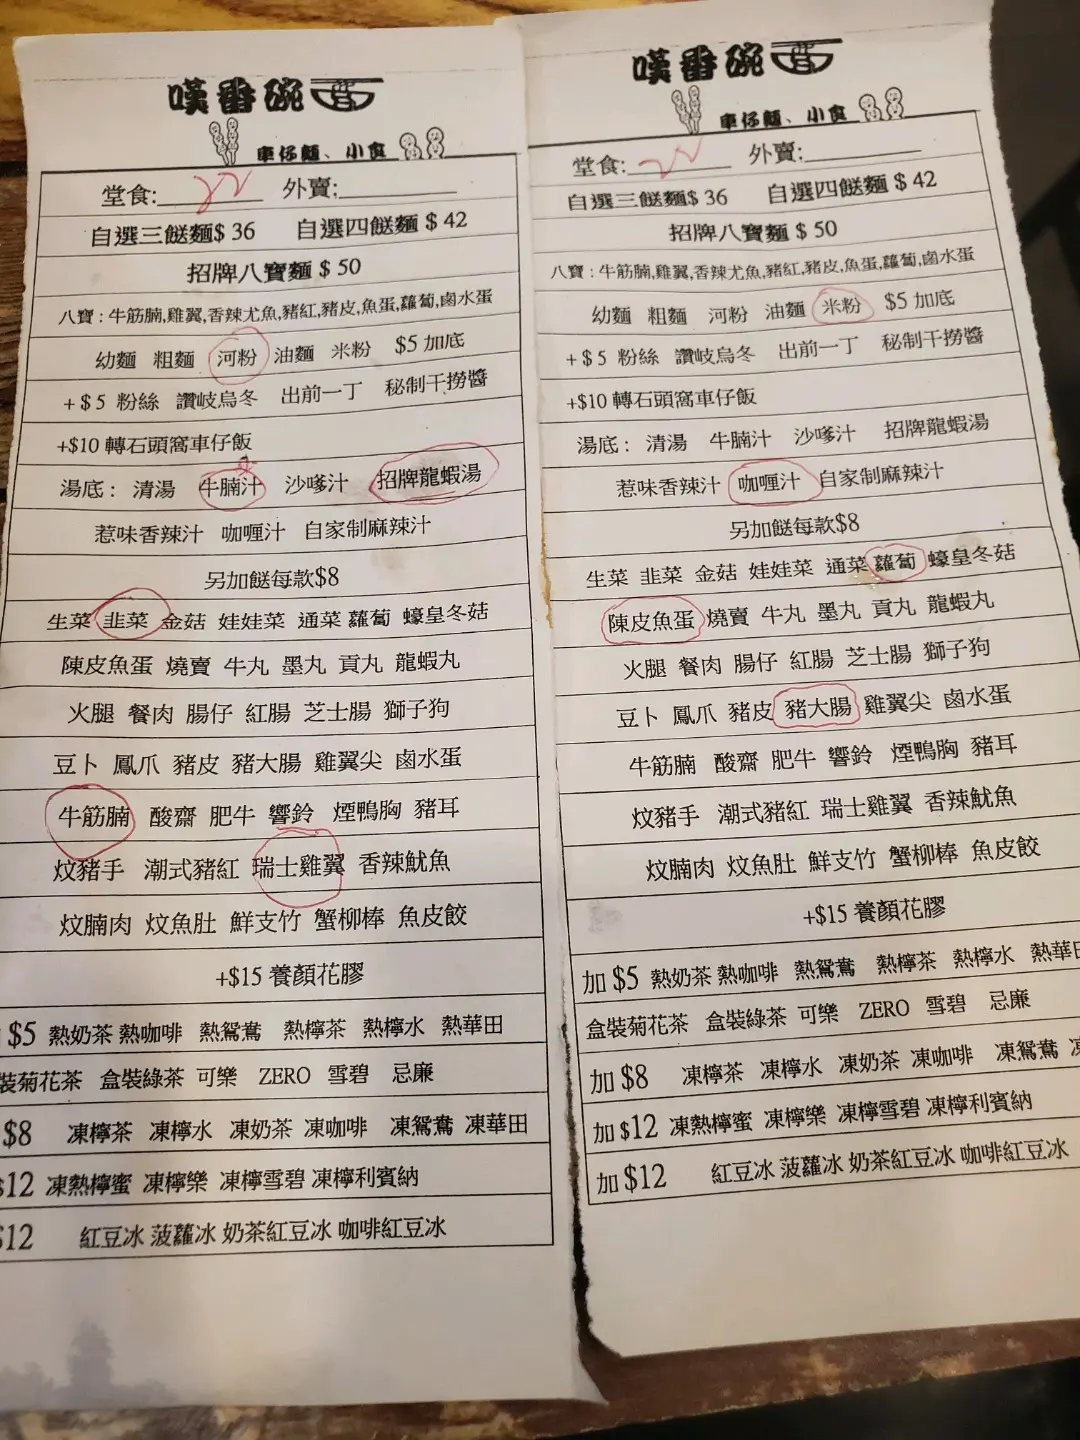 嘆番碗
車仔麵、小食
堂食: 外賣:
自選三餸麵$ 36 自選四餸麵 $ 42
招牌八寶麵 $ 50
八寶 : 牛筋腩,雞翼,香辣尤魚,豬紅,豬皮,魚蛋,蘿蔔,鹵水蛋
幼麵 粗麵 河粉 油麵 米粉 $5 加底
+ $ 5 粉絲 讚岐烏冬 出前一丁 秘制干撈醬
+$10 轉石頭窩車仔飯
湯底 : 清湯 牛腩汁 沙嗲汁 招牌龍蝦湯
惹味香辣汁 咖喱汁 自家制麻辣汁
另加餸每款$8
生菜 韭菜 金菇 娃娃菜 通菜 蘿蔔 蠔皇冬菇
陳皮魚蛋 燒賣 牛丸 墨丸 貢丸 龍蝦丸
火腿 餐肉 腸仔 紅腸 芝士腸 獅子狗
豆卜 鳳爪 豬皮 豬大腸 雞翼尖 鹵水蛋
牛筋腩 酸齋 肥牛 響鈴 煙鴨胸 豬耳
炆豬手 潮式豬紅 瑞士雞翼 香辣魷魚
炆腩肉 炆魚肚 鮮支竹 蟹柳棒 魚皮餃
+$15 養顏花膠
$5 熱奶茶 熱咖啡 熱鴛鴦 熱檸茶 熱檸水 熱華田
裝菊花茶 盒裝綠茶 可樂 ZERO 雪碧 忌廉
$8 凍檸茶 凍檸水 凍奶茶 凍咖啡 凍鴛鴦 凍華田
$12 凍熱檸蜜 凍檸樂 凍檸雪碧 凍檸利賓納
$12 紅豆冰 菠蘿冰 奶茶紅豆冰 咖啡紅豆冰
嘆番碗
車仔麵、小食
堂食: 外賣:
自選三餸麵$ 36 自選四餸麵 $ 42
招牌八寶麵 $ 50
八寶 : 牛筋腩,雞翼,香辣尤魚,豬紅,豬皮,魚蛋,蘿蔔,鹵水蛋
幼麵 粗麵 河粉 油麵 米粉 $5 加底
+ $ 5 粉絲 讚岐烏冬 出前一丁 秘制干撈醬
+$10 轉石頭窩車仔飯
湯底 : 清湯 牛腩汁 沙嗲汁 招牌龍蝦湯
惹味香辣汁 咖喱汁 自家制麻辣汁
另加餸每款$8
生菜 韭菜 金菇 娃娃菜 通菜 蘿蔔 蠔皇冬菇
陳皮魚蛋 燒賣 牛丸 墨丸 貢丸 龍蝦丸
火腿 餐肉 腸仔 紅腸 芝士腸 獅子狗
豆卜 鳳爪 豬皮 豬大腸 雞翼尖 鹵水蛋
牛筋腩 酸齋 肥牛 響鈴 煙鴨胸 豬耳
炆豬手 潮式豬紅 瑞士雞翼 香辣魷魚
炆腩肉 炆魚肚 鮮支竹 蟹柳棒 魚皮餃
+$15 養顏花膠
加 $5 熱奶茶 熱咖啡 熱鴛鴦 熱檸茶 熱檸水 熱華田
盒裝菊花茶 盒裝綠茶 可樂 ZERO 雪碧 忌廉
加 $8 凍檸茶 凍檸水 凍奶茶 凍咖啡 凍鴛鴦
加 $12 凍熱檸蜜 凍檸樂 凍檸雪碧 凍檸利賓納
加 $12 紅豆冰 菠蘿冰 奶茶紅豆冰 咖啡紅豆冰